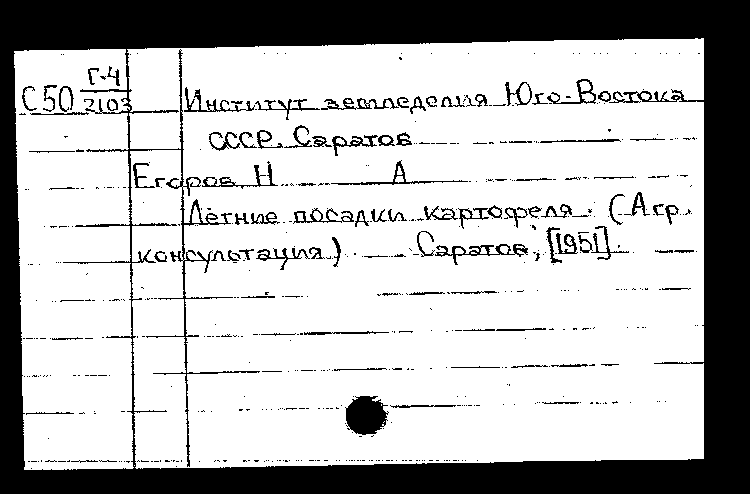 С50 Г-4/2103 Институт земледелия Юго-Востока
СССР. Саратов
Егоров, Н А
Летние посадки картофеля. (Агр.
консультация) Саратов, [1951].